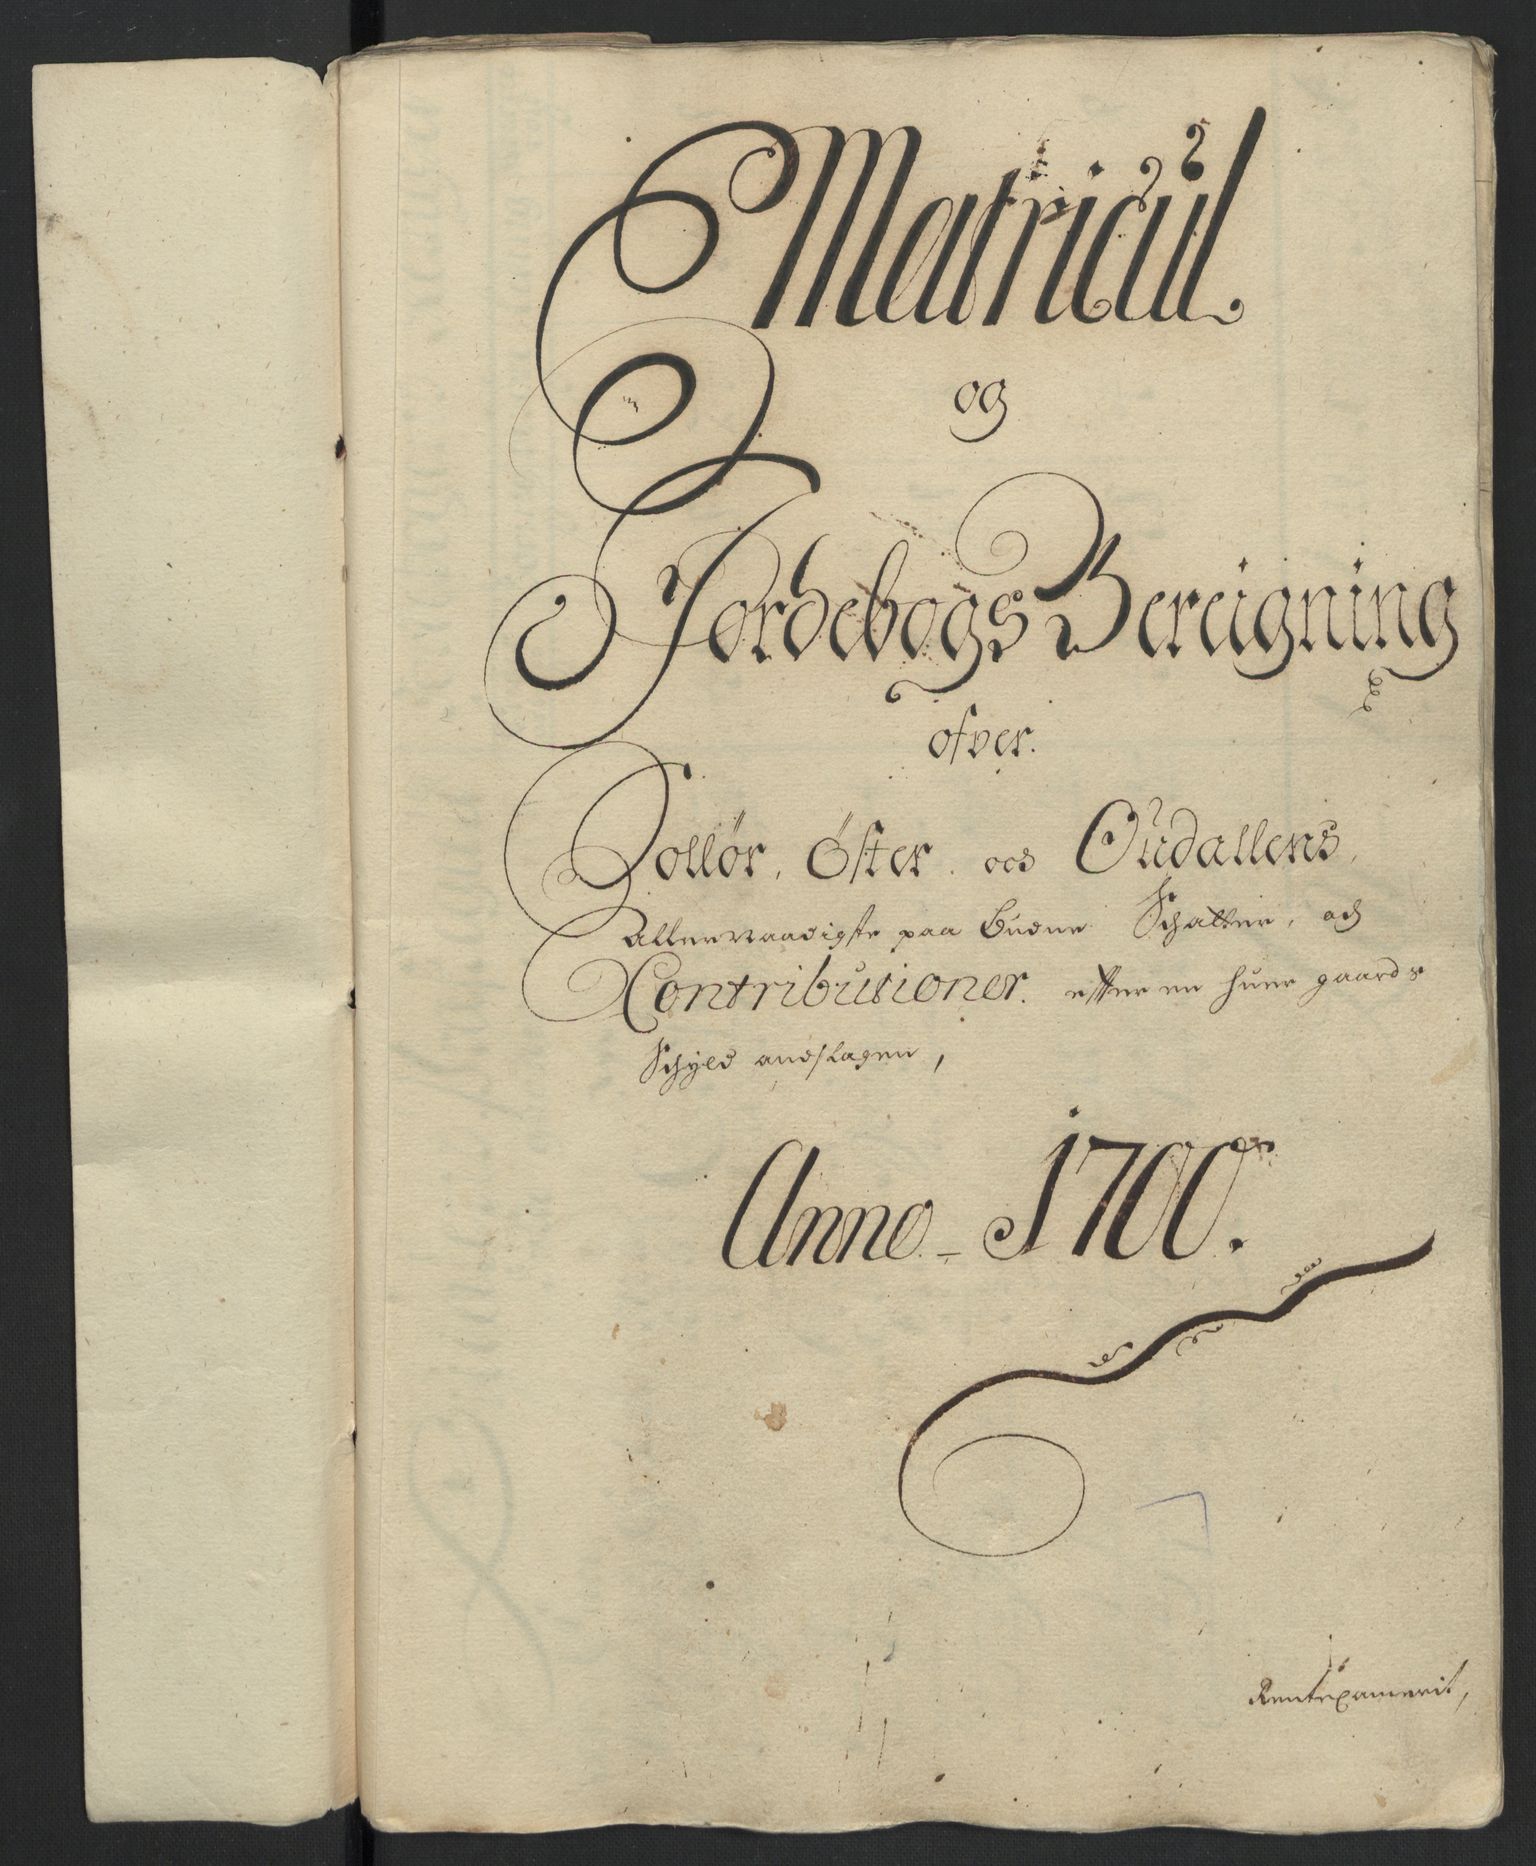 Matricul
og
Jordebogs Bereigning
ofver.
Sollør, Øster. och Oudallens,
Allernaadigste paa budne Schatter, och
Contributioner. effter en huer gaards
Schyld andslagen,
Anno - 1700.
Rentecammerit,